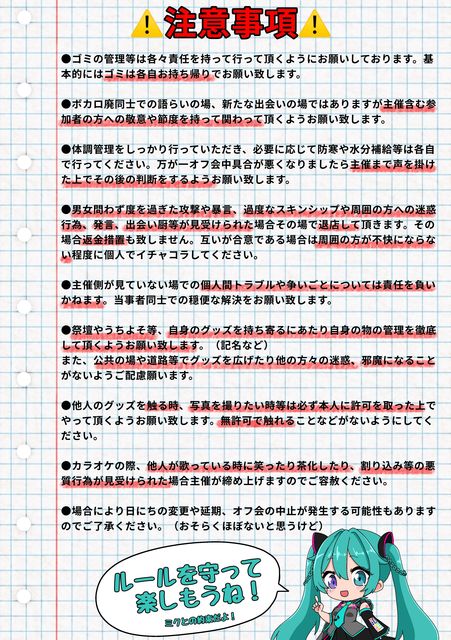 ⚠️注意事項⚠️
●ゴミの管理等は各々責任を持って行って頂くようにお願いしております。基
本的にはゴミは各自お持ち帰りでお願い致します。
●ボカロ廃同士での語らいの場、新たな出会いの場ではありますが主催含む参
加者の方への敬意や節度を持って関わって頂くようお願い致します。
●体調管理をしっかり行っていただき、必要に応じて防寒や水分補給等は各自
で行ってください。万が一オフ会中具合が悪くなりましたら主催まで声を掛け
た上でその後の判断をするようお願い致します。
●男女問わず度を過ぎた攻撃や暴言、過度なスキンシップや周囲の方への迷惑
行為、発言、出会い厨等が見受けられた場合その場で退店して頂きます。その
場合返金措置も致しません。互いが合意である場合は周囲の方が不快にならな
い程度に個人でイチャコラしてください。
●主催側が見ていない場での個人間トラブルや争いごとについては責任を負い
かねます。当事者同士での穏便な解決をお願い致します。
●祭壇やうちよそ等、自身のグッズを持ち寄るにあたり自身の物の管理を徹底
して頂くようお願い致します。（記名など）
また、公共の場や道路等でグッズを広げたり他の方々の迷惑、邪魔になること
がないようご配慮願います。
●他人のグッズを触る時、写真を撮りたい時等は必ず本人に許可を取った上で
やって頂くようお願い致します。無許可で触れることなどがないようにしてく
ださい。
●カラオケの際、他人が歌っている時に笑ったり茶化したり、割り込み等の悪
質行為が見受けられた場合主催が締め上げますのでご容赦ください。
●場合により日にちの変更や延期、オフ会の中止が発生する可能性もあります
のでご了承ください。（おそらくほぼないと思うけど）
ルールを守って
楽しもうね！
ミクとの約束だよ！